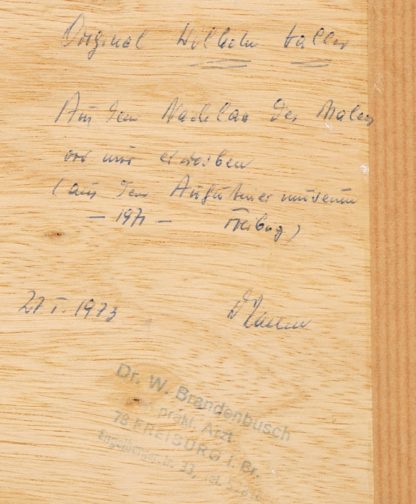 Original Wilhelm Haller
Aus dem Nachlas des Malers
von mir erworben
(aus dem Augustiner museum
– 1971 – Freiburg)
27 I. 1973
Dr. W. Brandenbusch
prakt. Arzt
78 FREIBURG i. Br.
33, Tel.